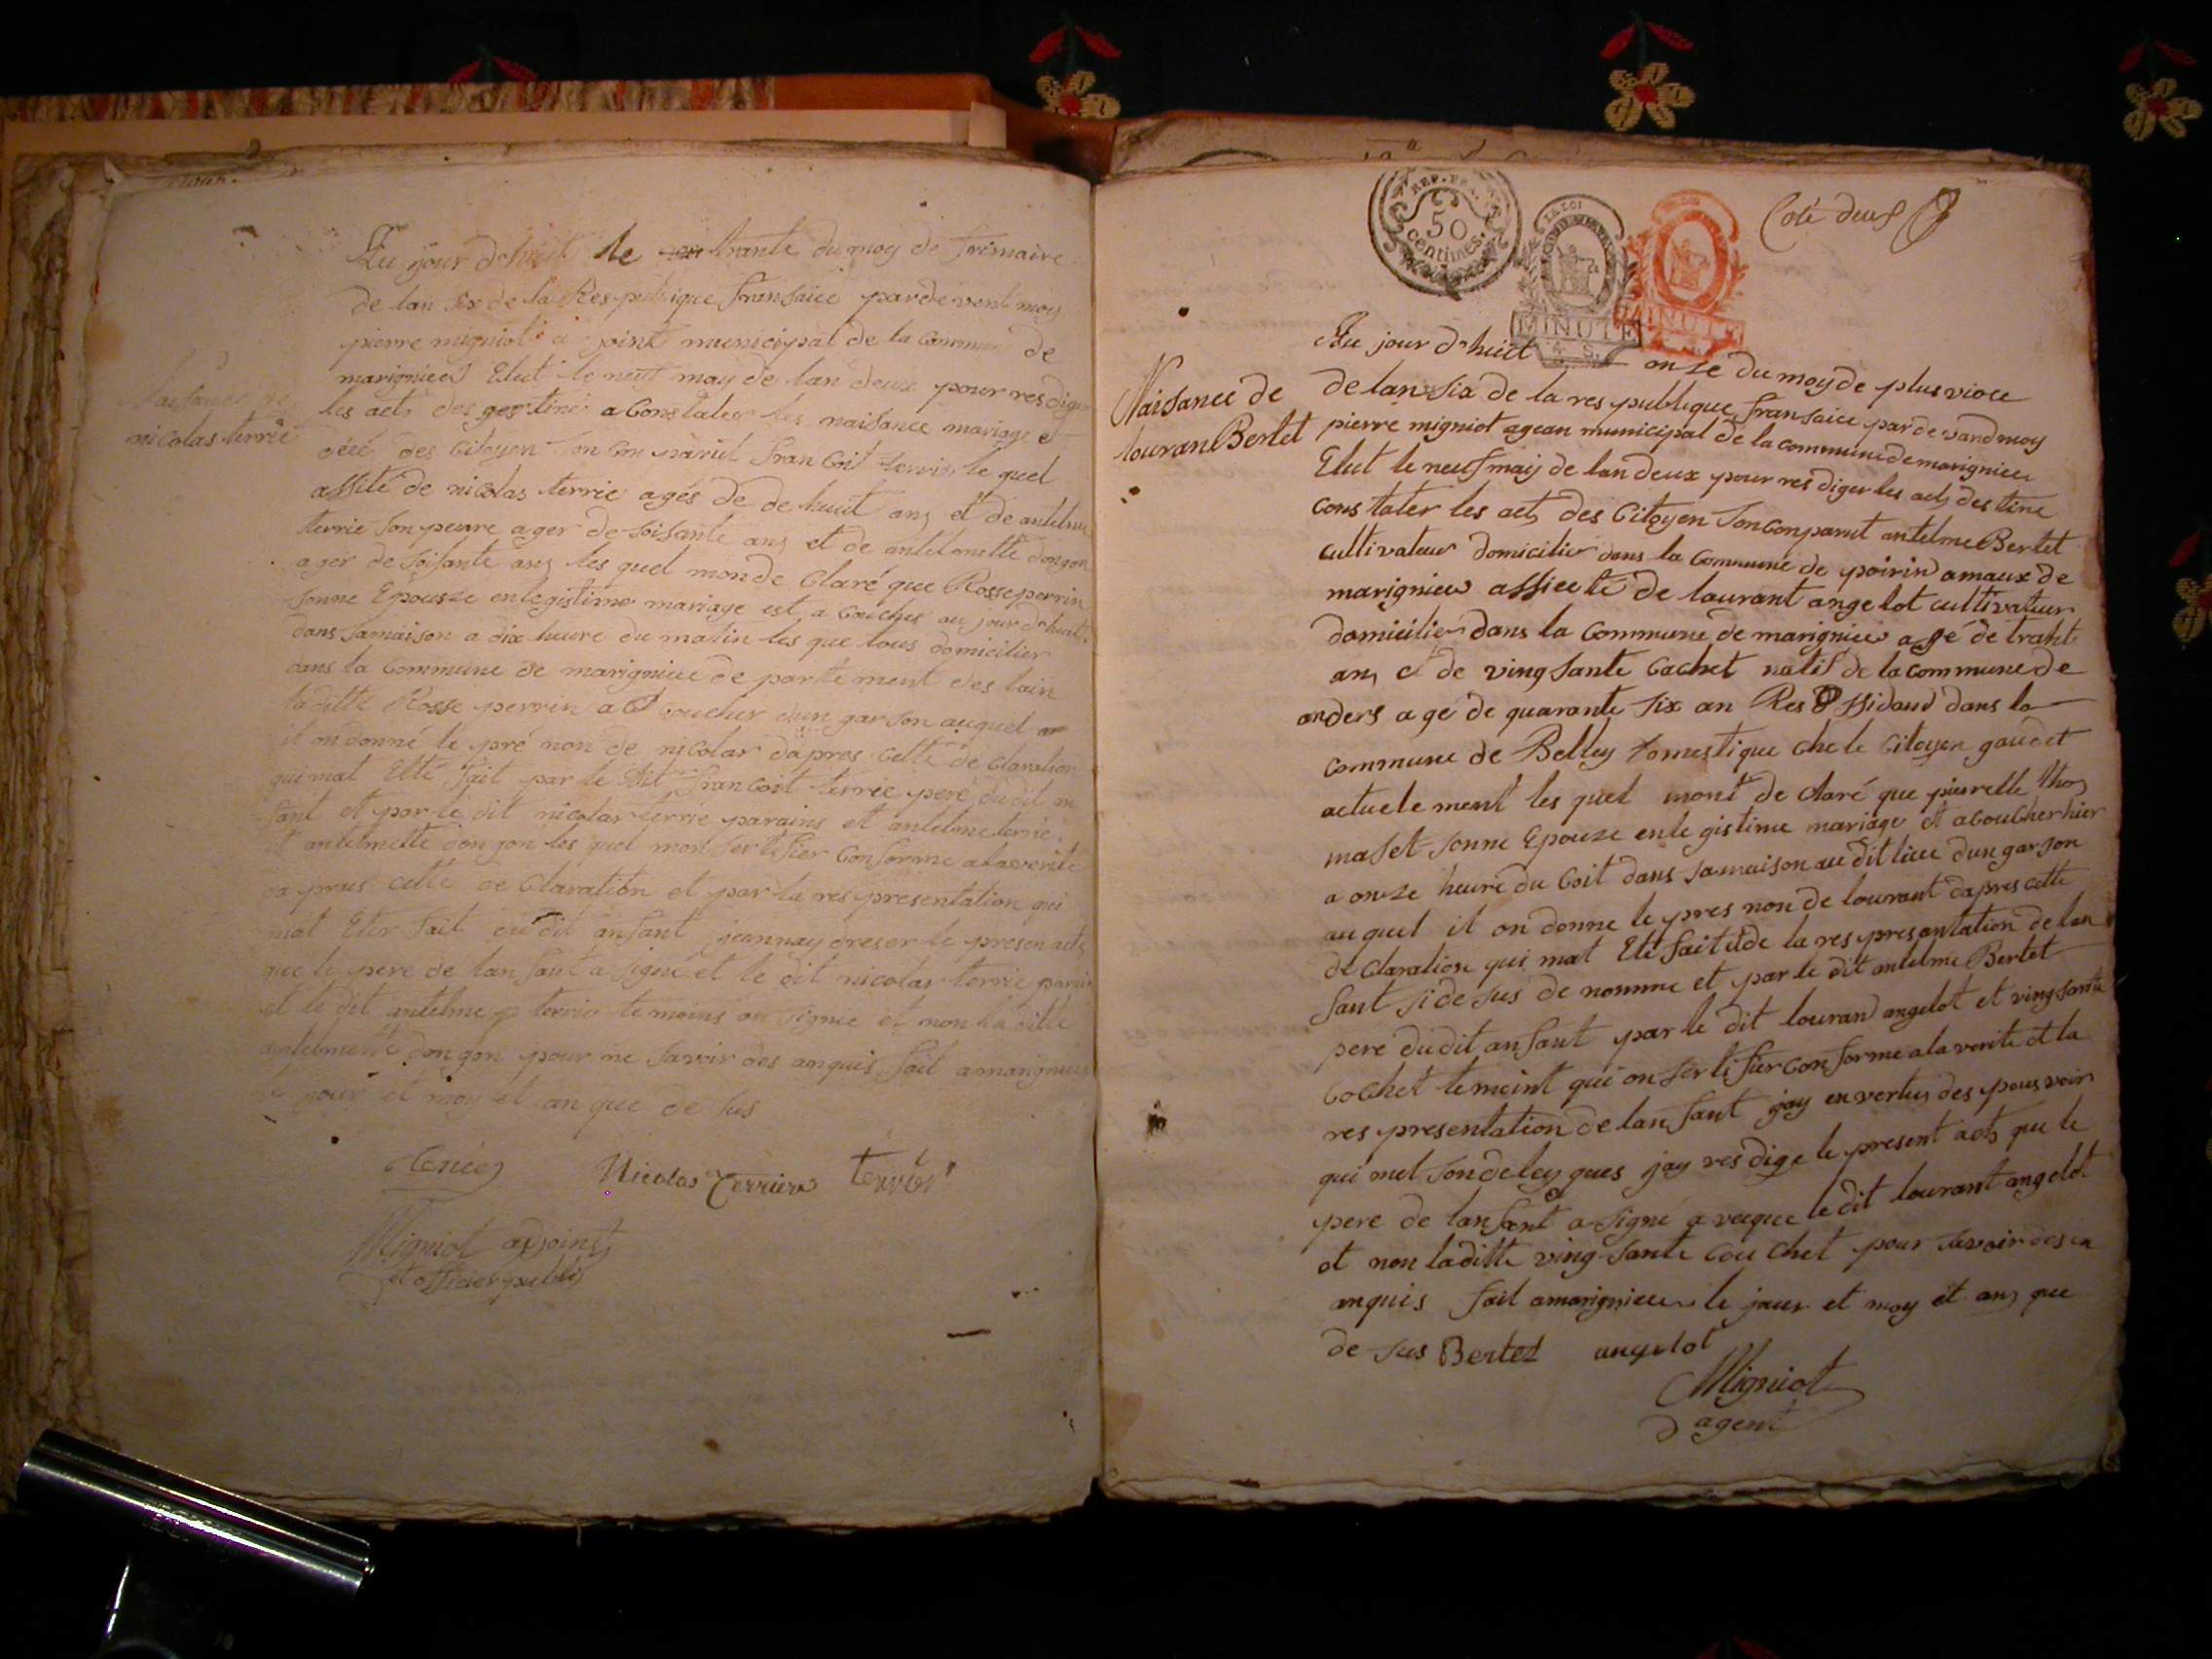 Au jour d'huit le trante du moy de frimaire
de lan six de la Res publique fransaice pardevent moy
pierre migniot a joint municipal de la Commune de
marignieu Elut le neuf may de lan deux pour res diger
les acts des gestine a Constater les naisance mariage et
décé des Citoyen son Con parut francoit terrie le quel
Naisance de
nicolas terrie
assité de nicolas terrie agés de de huit ans et de antelme
terrie son peure ager de soisante ans et de antelmette dongon
ager de soisante ans les quel mon de Claré que Rosse perrin
sonne Epousze en legistime mariage est a Coucher au jour d'huit
dans samaison a dix heure du matin les que tous domicilier
dans la Commune de marignieu de parte ment des lain
laditte Rosse perrin a Coucher dun garson auquel
il on donné le pré non de nicolas dapres cette de claration
qui mat Elté fait par le dit francoit terrie pere du dit an
fant et par le dit nicolas terrie parains et antelme terrie
et antelmette dongon les quel mon sertifier Conforme a laverité
da pres cette de Claration et par la res presentation qui
mat Eter fait du dit anfant jeannay dreser le presen acts
que le pere de lanfant a signé et le dit nicolas terrie parain
et le dit antelme terrie temoins on signie et non la ditte
antelmette dongon pour ne savoir des anquis fait a marignieu
le jour et moy et an que de sus
Nicolas Terrier terrier
Migniot adjoint
et officier public
Coté deux
REP. FRA.
50
centimes.
LA LOI
MINUTE
MINUTE
Au jour d'huit onze du moy de plusviose
Naisance de
louran Bertet
de lan six de la res publique fransaice par de vand moy
pierre migniot agean municipal de la commune de marignieu
Elut le neuf maij de lan deux pour res diger les acts des tine
constater les acts des Citoyen son conparut antelme Bertet
cultivateur domicilier dans la Commune de poirin amaux de
marignieu assiecté de laurant angelot cultivateur
domicilier dans la Commune de marignieu agé de trante
ans et de ving sante Cachet natif de la commune de
anders agé de quarante six an Res ssidand dans la
commune de Belley domestique che le Citoyen gaudet
actuele ment les quel mont de claré que pierrette thos
maset sonne Epouze en le gistime mariage et acoucher hier
a onze heure du Coit dans samaison au dit lieu dun garson
au quel il on donne le pres non de lourant dapres cette
de claration qui mat Eté fait et de la res presantation de lan
fant si de sus de nomme et par le dit antelme Bertet
pere dudit anfant par le dit louran angelot et ving sante
Cochet temoint qui on sertifier conforme a la verite et la
res presentation de lanfant jay en vertus des pousvoir
qui mel son deleg ques jay res dige le present acts que le
pere de lanfant a signé avecque le dit lourant angelot
et non laditte ving sante Couchet pour savoir des en
anquis fait a marignieu le jour et moy et ans que
de sus Bertet angelot
Migniot
agent